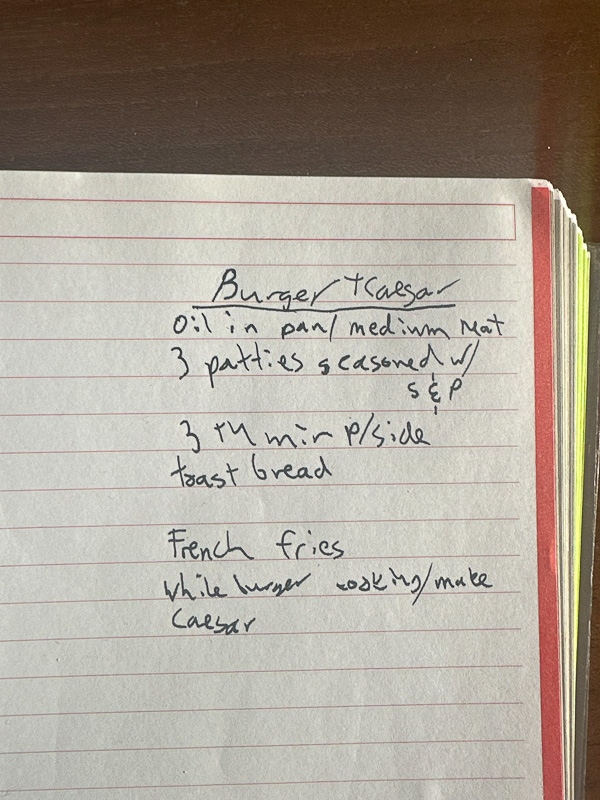 Burger + Caesar
Oil in pan/ medium heat
3 patties seasoned w/
S & P
3 + 4 min p/side
toast bread
French fries
while burger cooking/make
Caesar